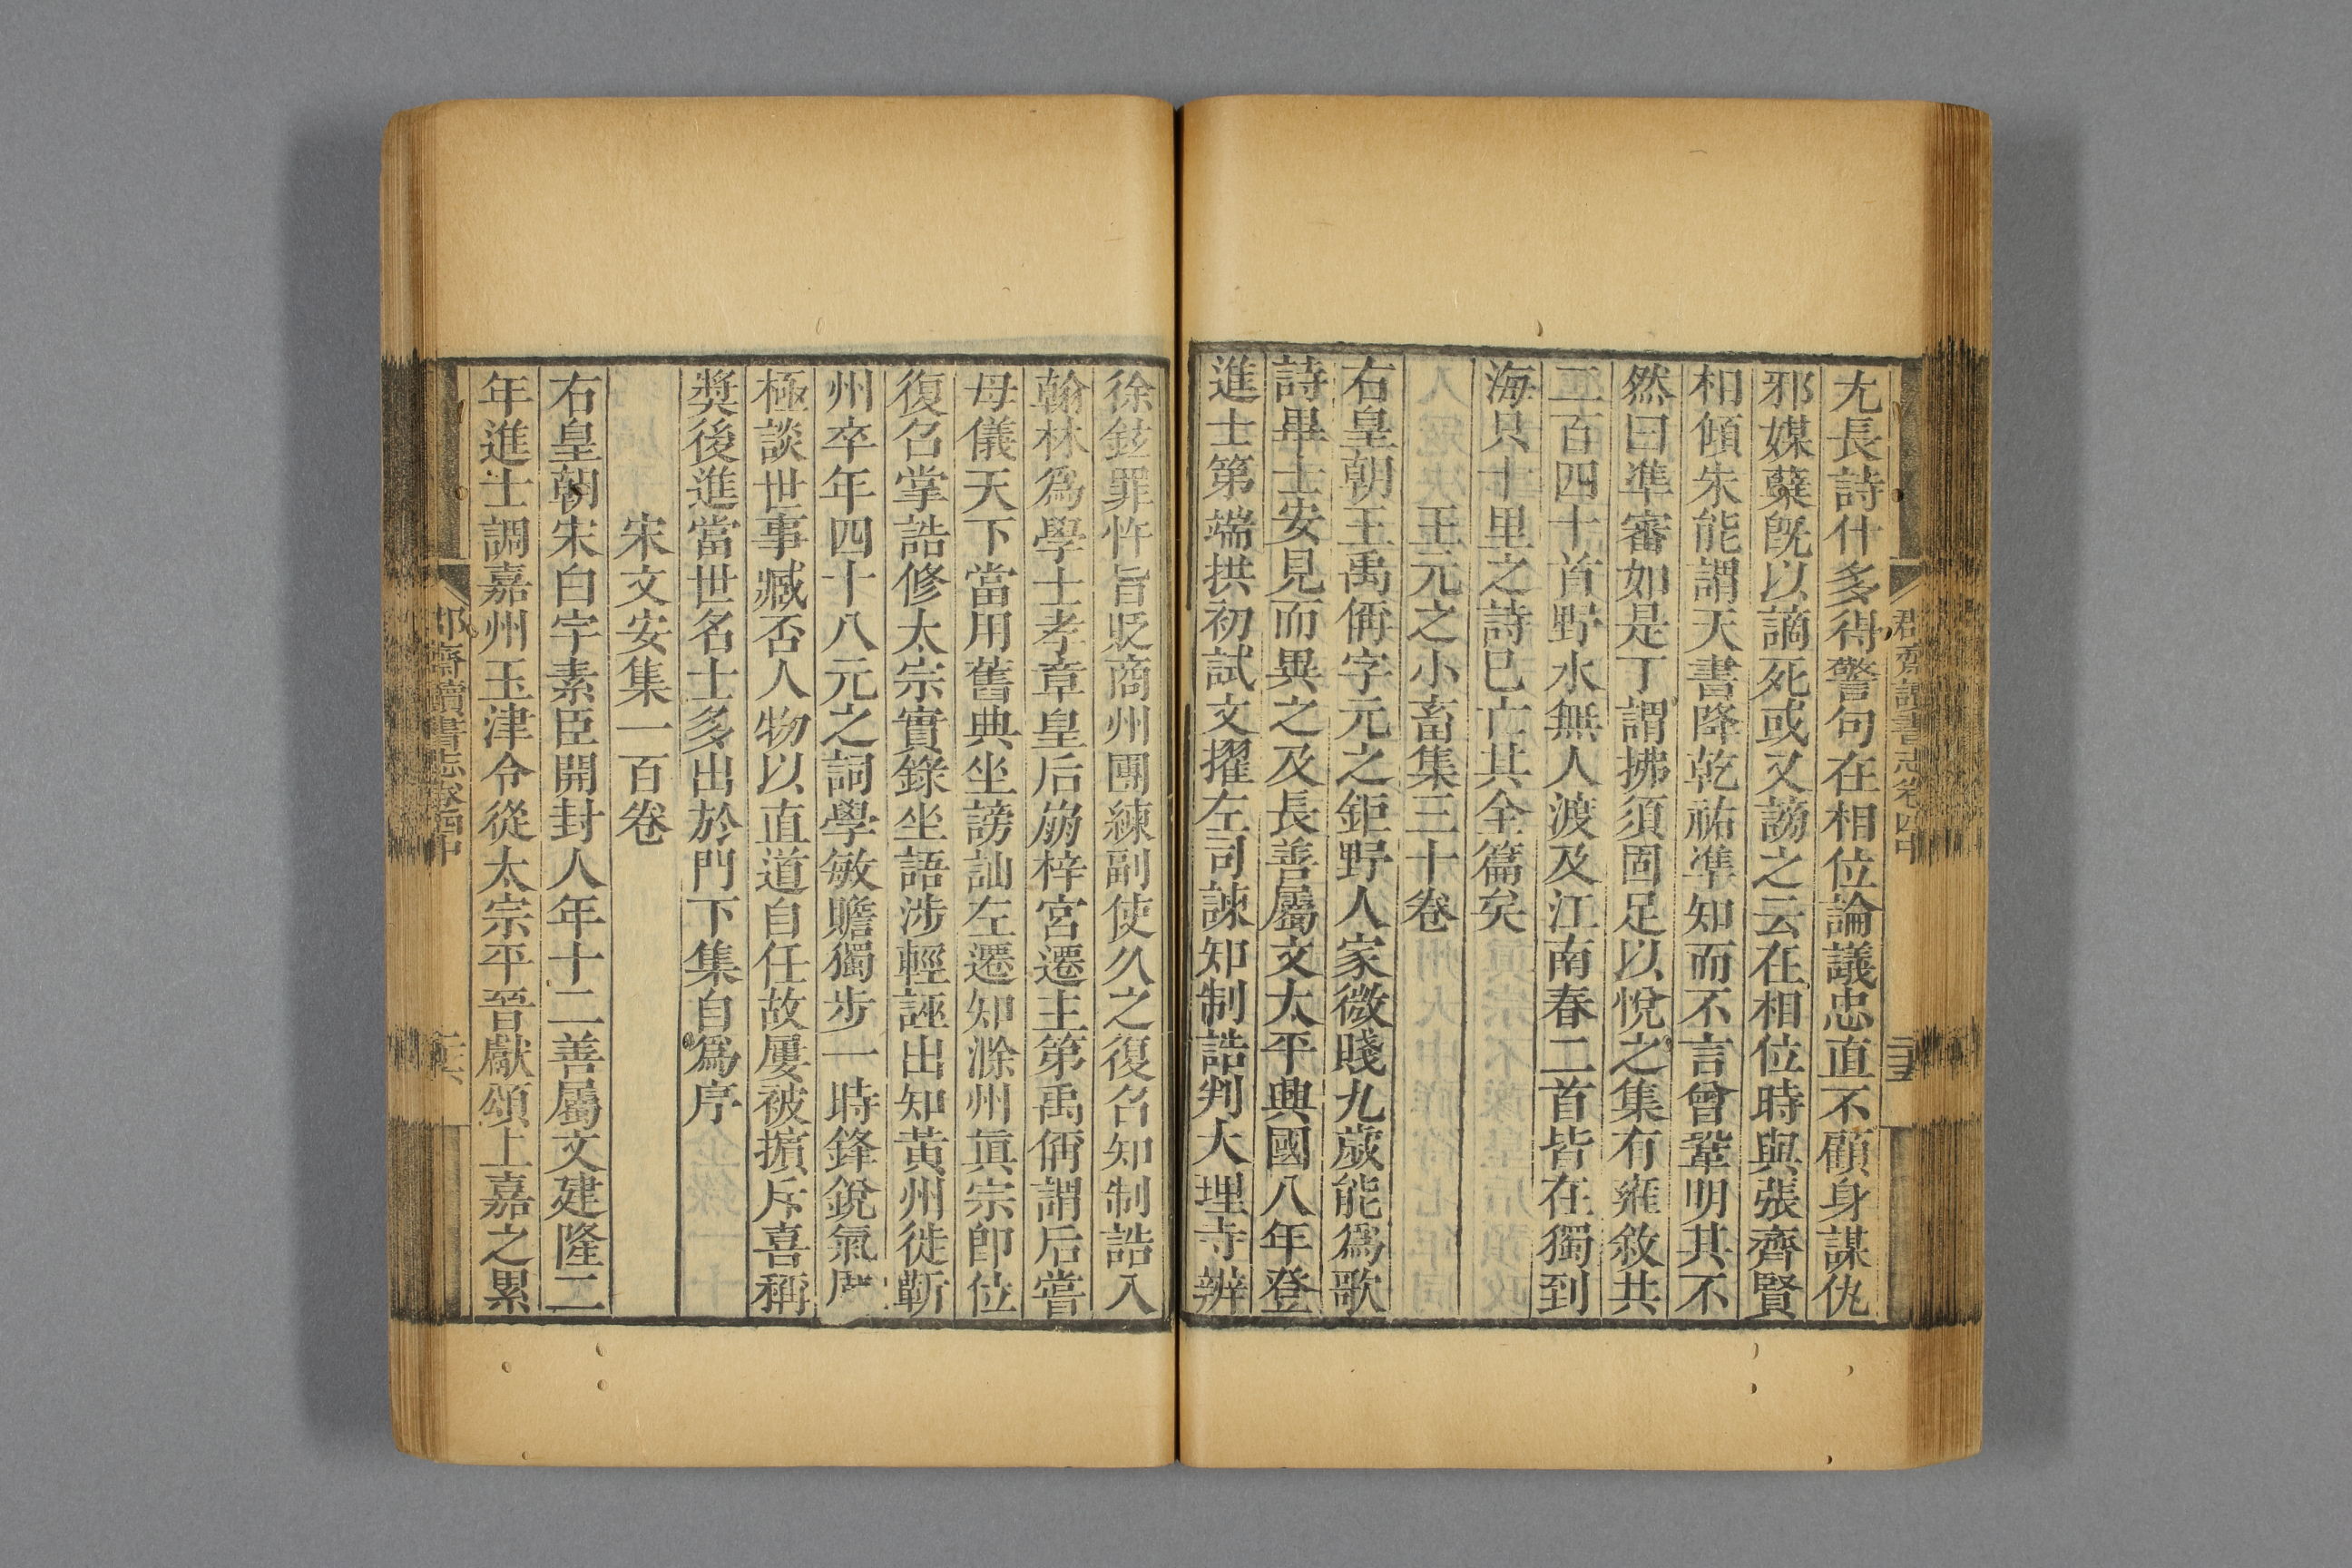 尤長詩什多得警句在相位論議忠直不顧身謀仇
邪媒蘖旣以謫死或又謗之云在相位時與張齊賢
相傾朱能謂天書降乾祐凖知而不言曾鞏明其不
然曰凖審如是丁謂拂須固足以悅之集有雍敘共
二百四十首野水無人渡及江南春二首皆在獨到
海只十里之詩已亡其全篇矣
王元之小畜集三十卷
右皇朝王禹偁字元之鉅野人家微賤九歲能爲歌
詩畢士安見而異之及長善屬文太平興國八年登
進士第端拱初試文擢左司諫知制誥判大理寺辨
郡齋讀書志卷四中
二十五
徐鉉罪忤旨貶商州團練副使久之復召知制誥入
翰林爲學士孝章皇后崩梓宮遷主第禹偁謂后嘗
母儀天下當用舊典坐謗訕左遷知滁州真宗卽位
復召掌誥修太宗實錄坐語涉輕誣出知黃州徙蘄
州卒年四十八元之詞學敏贍獨步一時鋒銳氣
極談世事臧否人物以直道自任故屢被擯斥喜稱
奬後進當世名士多出於門下集自爲序
宋文安集一百卷
右皇朝宋白字素臣開封人年十二善屬文建隆二
年進士調嘉州玉津令從太宗平晉獻頌上嘉之累
郡齋讀書志卷四中